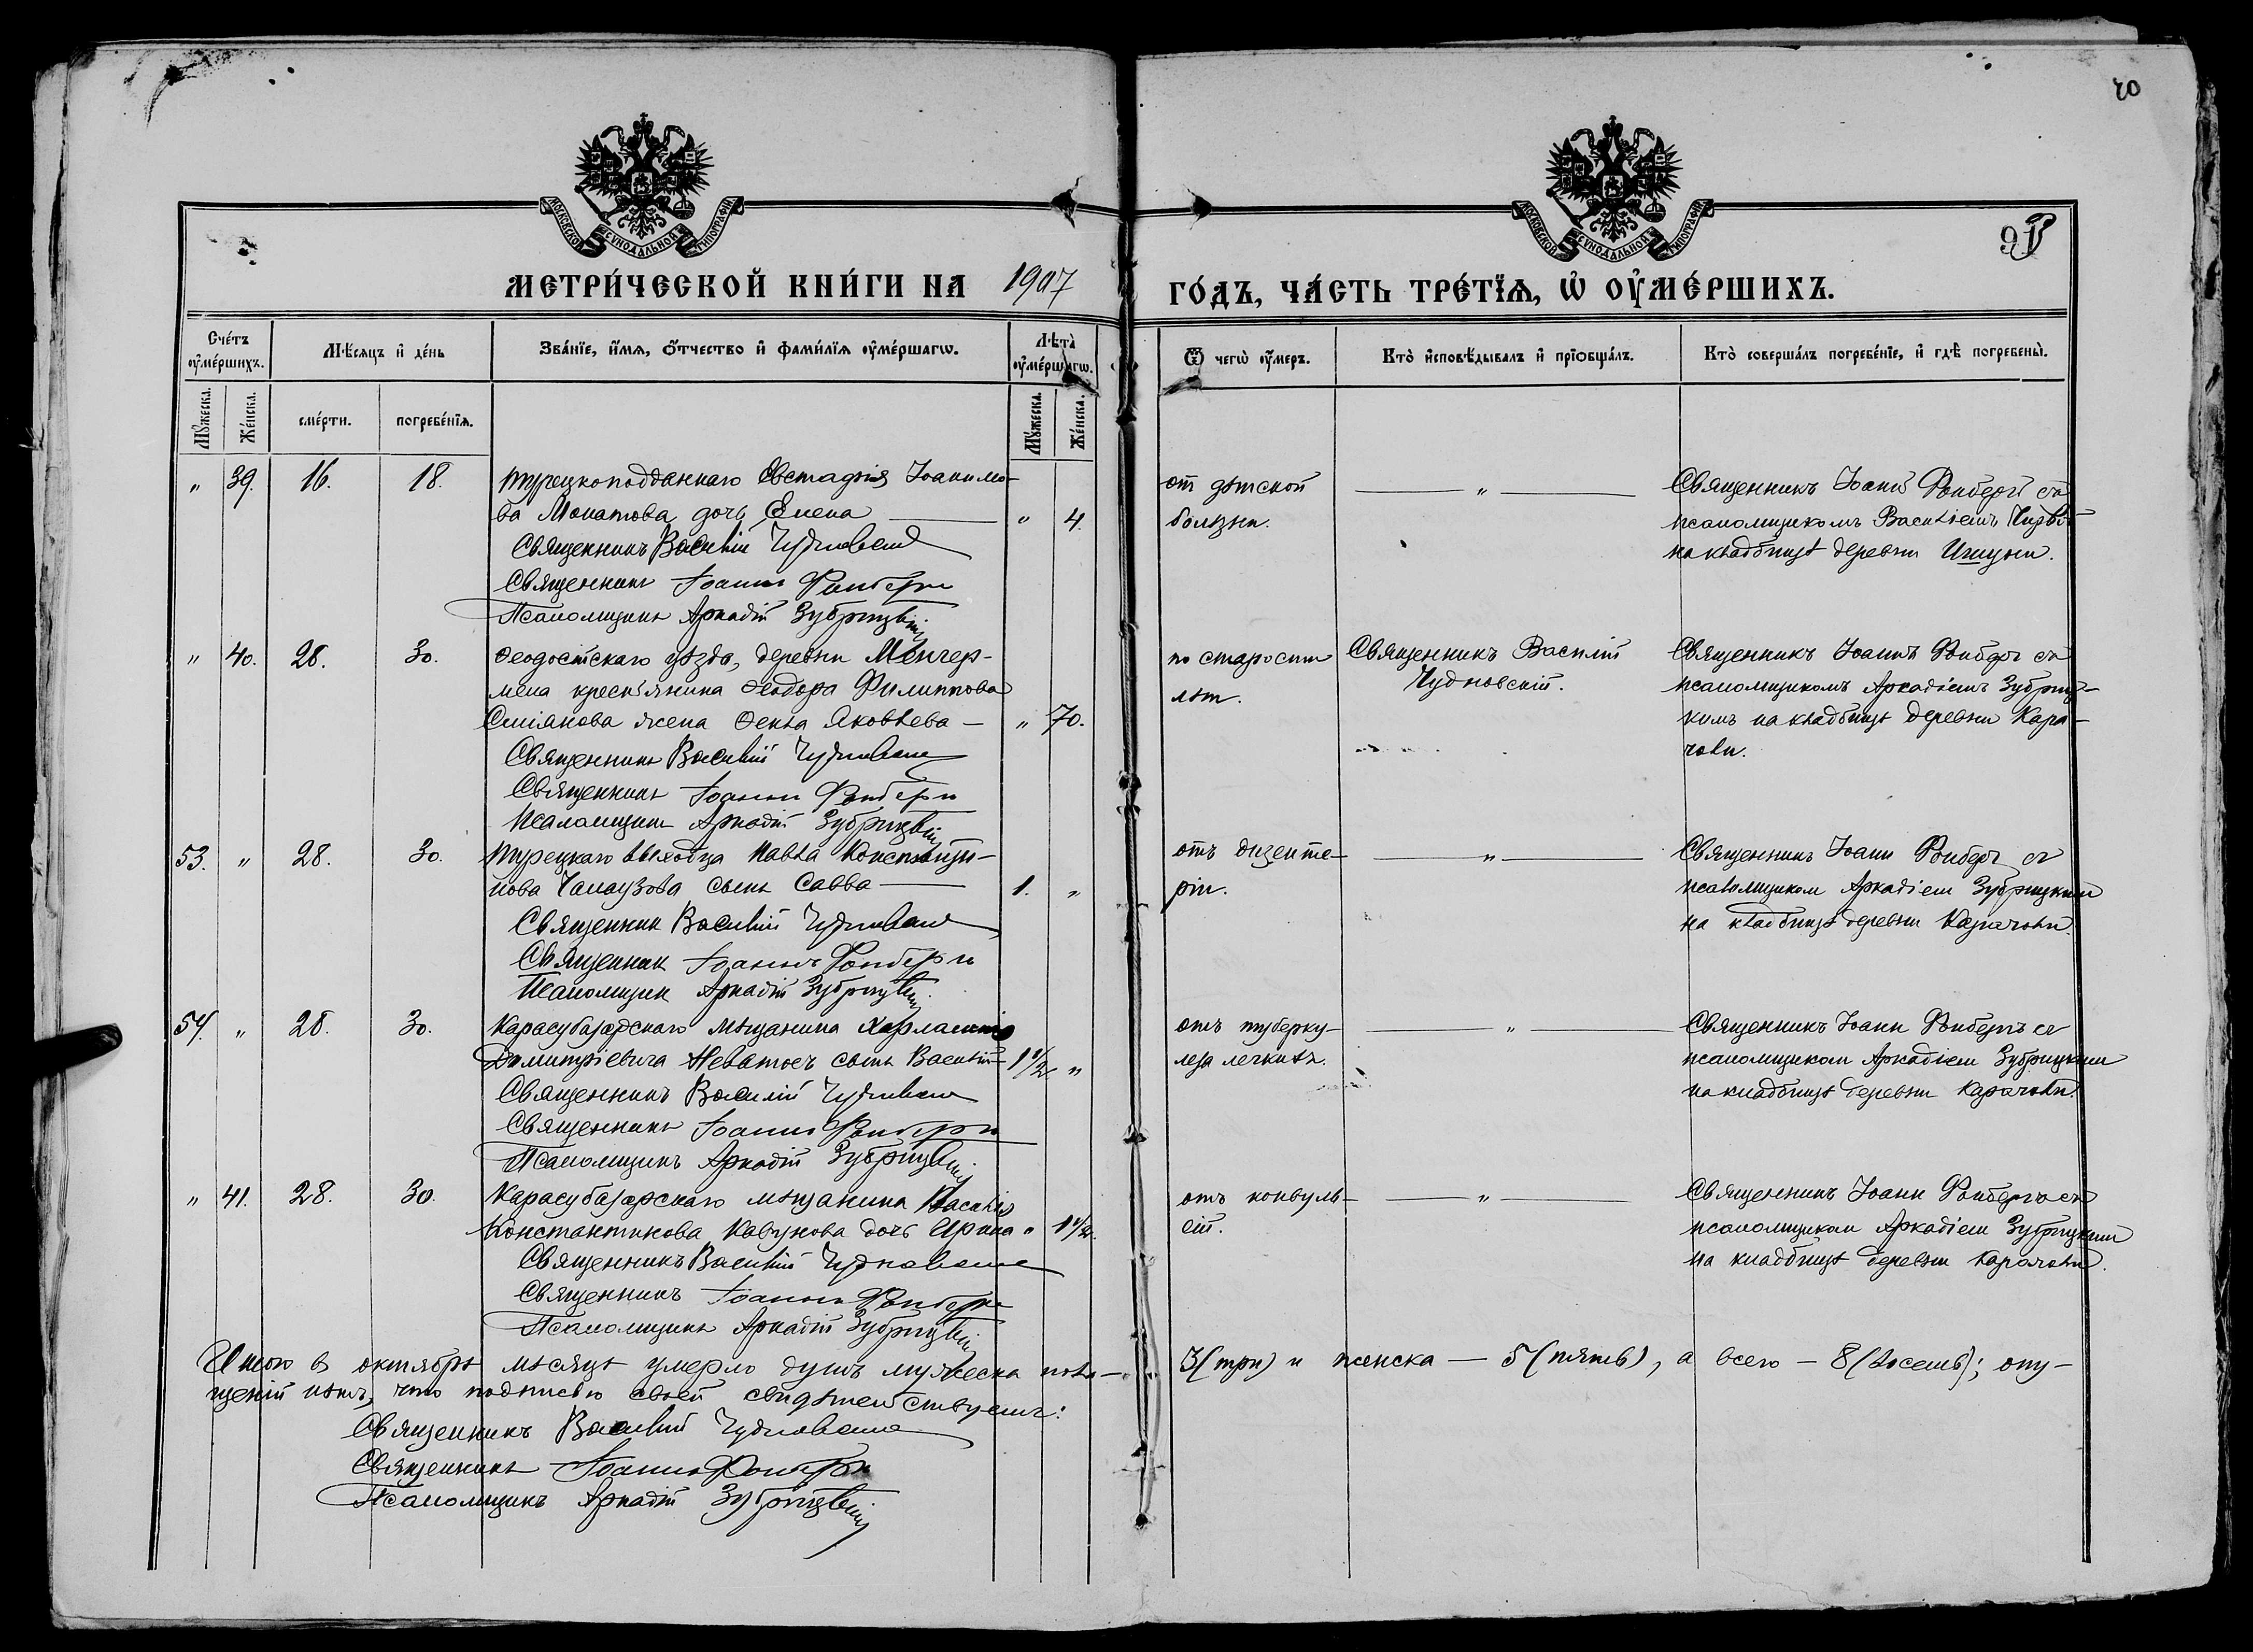 20
МОСКОВСКОЙ СУНОДАЛЬНОЙ ТИПОГРАФІИ
МОСКОВСКОЙ СУНОДАЛЬНОЙ ТИПОГРАФІИ
МЕТРИ́ЧЕСКОЙ КНИ́ГИ НА 1907 ГО́ДЪ, ЧА́СТЬ ТРЕ́ТІѦ, Ѡ ОУМЕ́РШИХЪ.
Сче́тъ оуме́ршихъ.
Мѣ́сяцъ и де́нь
Зва́нїе, и́мя, о́тчество и фами́лїя оуме́ршагѡ.
Лѣта̀ оуме́ршагѡ.
Ѿ чегѡ̀ оу́меръ.
Кто̀ исповѣ́дывалъ и прїобща́лъ.
Кто̀ соверша́лъ погребе́нїе, и гдѣ̀ погребены̀.
Му́жеска.
Же́нска.
сме́рти.
погребе́нїя.
Му́жеска.
Же́нска.
" 39. 16. 18. Турецкоподданнаго Евстафія Іоакимо-
ва Монатова дочь Елена — " 4.
Священникъ Василій Чудновскій
Священникъ Іоаннъ Фонберг
Псаломщикъ Аркадій Зубрицкій
отъ дѣтской
болѣзни.
— " —
Священникъ Іоаннъ Фонберг съ
псаломщикомъ Василіемъ
на кладбищѣ деревни Ишуни.
" 40. 28. 30. Ѳеодосійскаго уѣзда, деревни Менгер-
мена крестьянина Ѳеодора Филиппова
жена Ѳекла Яковлева — " 70.
Священникъ Василій Чудновскій
Священникъ Іоаннъ Фонберг
Псаломщикъ Аркадій Зубрицкій
по старости
лѣт.
Священникъ Василій
Чудновскій.
Священникъ Іоаннъ Фонберг съ
псаломщикомъ Аркадіемъ Зубриц-
кимъ на кладбищѣ деревни Кара-
човы.
53. " 28. 30. Турецкаго выходца Павла Константи-
нова Чалаузова сынъ Савва — 1. "
Священник Василій Чудновскій
Священник Іоаннъ Фонберг
Псаломщик Аркадій Зубрицкій
отъ дизенте-
ріи.
— " —
Священникъ Іоанн Фонберг съ
псаломщиком Аркадіем Зубрицким
на кладбищѣ деревни Карачовы.
54. " 28. 30. Карасубазарскаго мѣщанина Харлампія
Димитріевича сынъ Василій — 1 1/2. "
Священникъ Василій Чудновскій
Священникъ Іоаннъ Фонберг
Псаломщикъ Аркадій Зубрицкій
отъ туберку-
леза легкихъ.
— " —
Священникъ Іоанн Фонбергъ съ
псаломщиком Аркадіем Зубрицким
на кладбищѣ деревни Карачовы.
" 41. 28. 30. Карасубазарскаго мѣщанина Василія
Константинова Кавунова дочь Ирина " 1 1/2.
Священникъ Василій Чудновскій
Священникъ Іоаннъ Фонберг
Псаломщикъ Аркадій Зубрицкій
отъ конвуль-
сій.
— " —
Священникъ Іоанн Фонбергъ съ
псаломщиком Аркадіем Зубрицким
на кладбищѣ деревни Карачовы.
Итого въ октябрѣ мѣсяцѣ умерло душъ мужеска пола — 3 (три) и женска — 5 (пять), а всего — 8 (восемь); опу-
щеній нѣтъ, что подписью своей свидѣтельствуемъ:
Священникъ Василій Чудновскій
Священникъ Іоаннъ Фонберг
Псаломщикъ Аркадій Зубрицкій